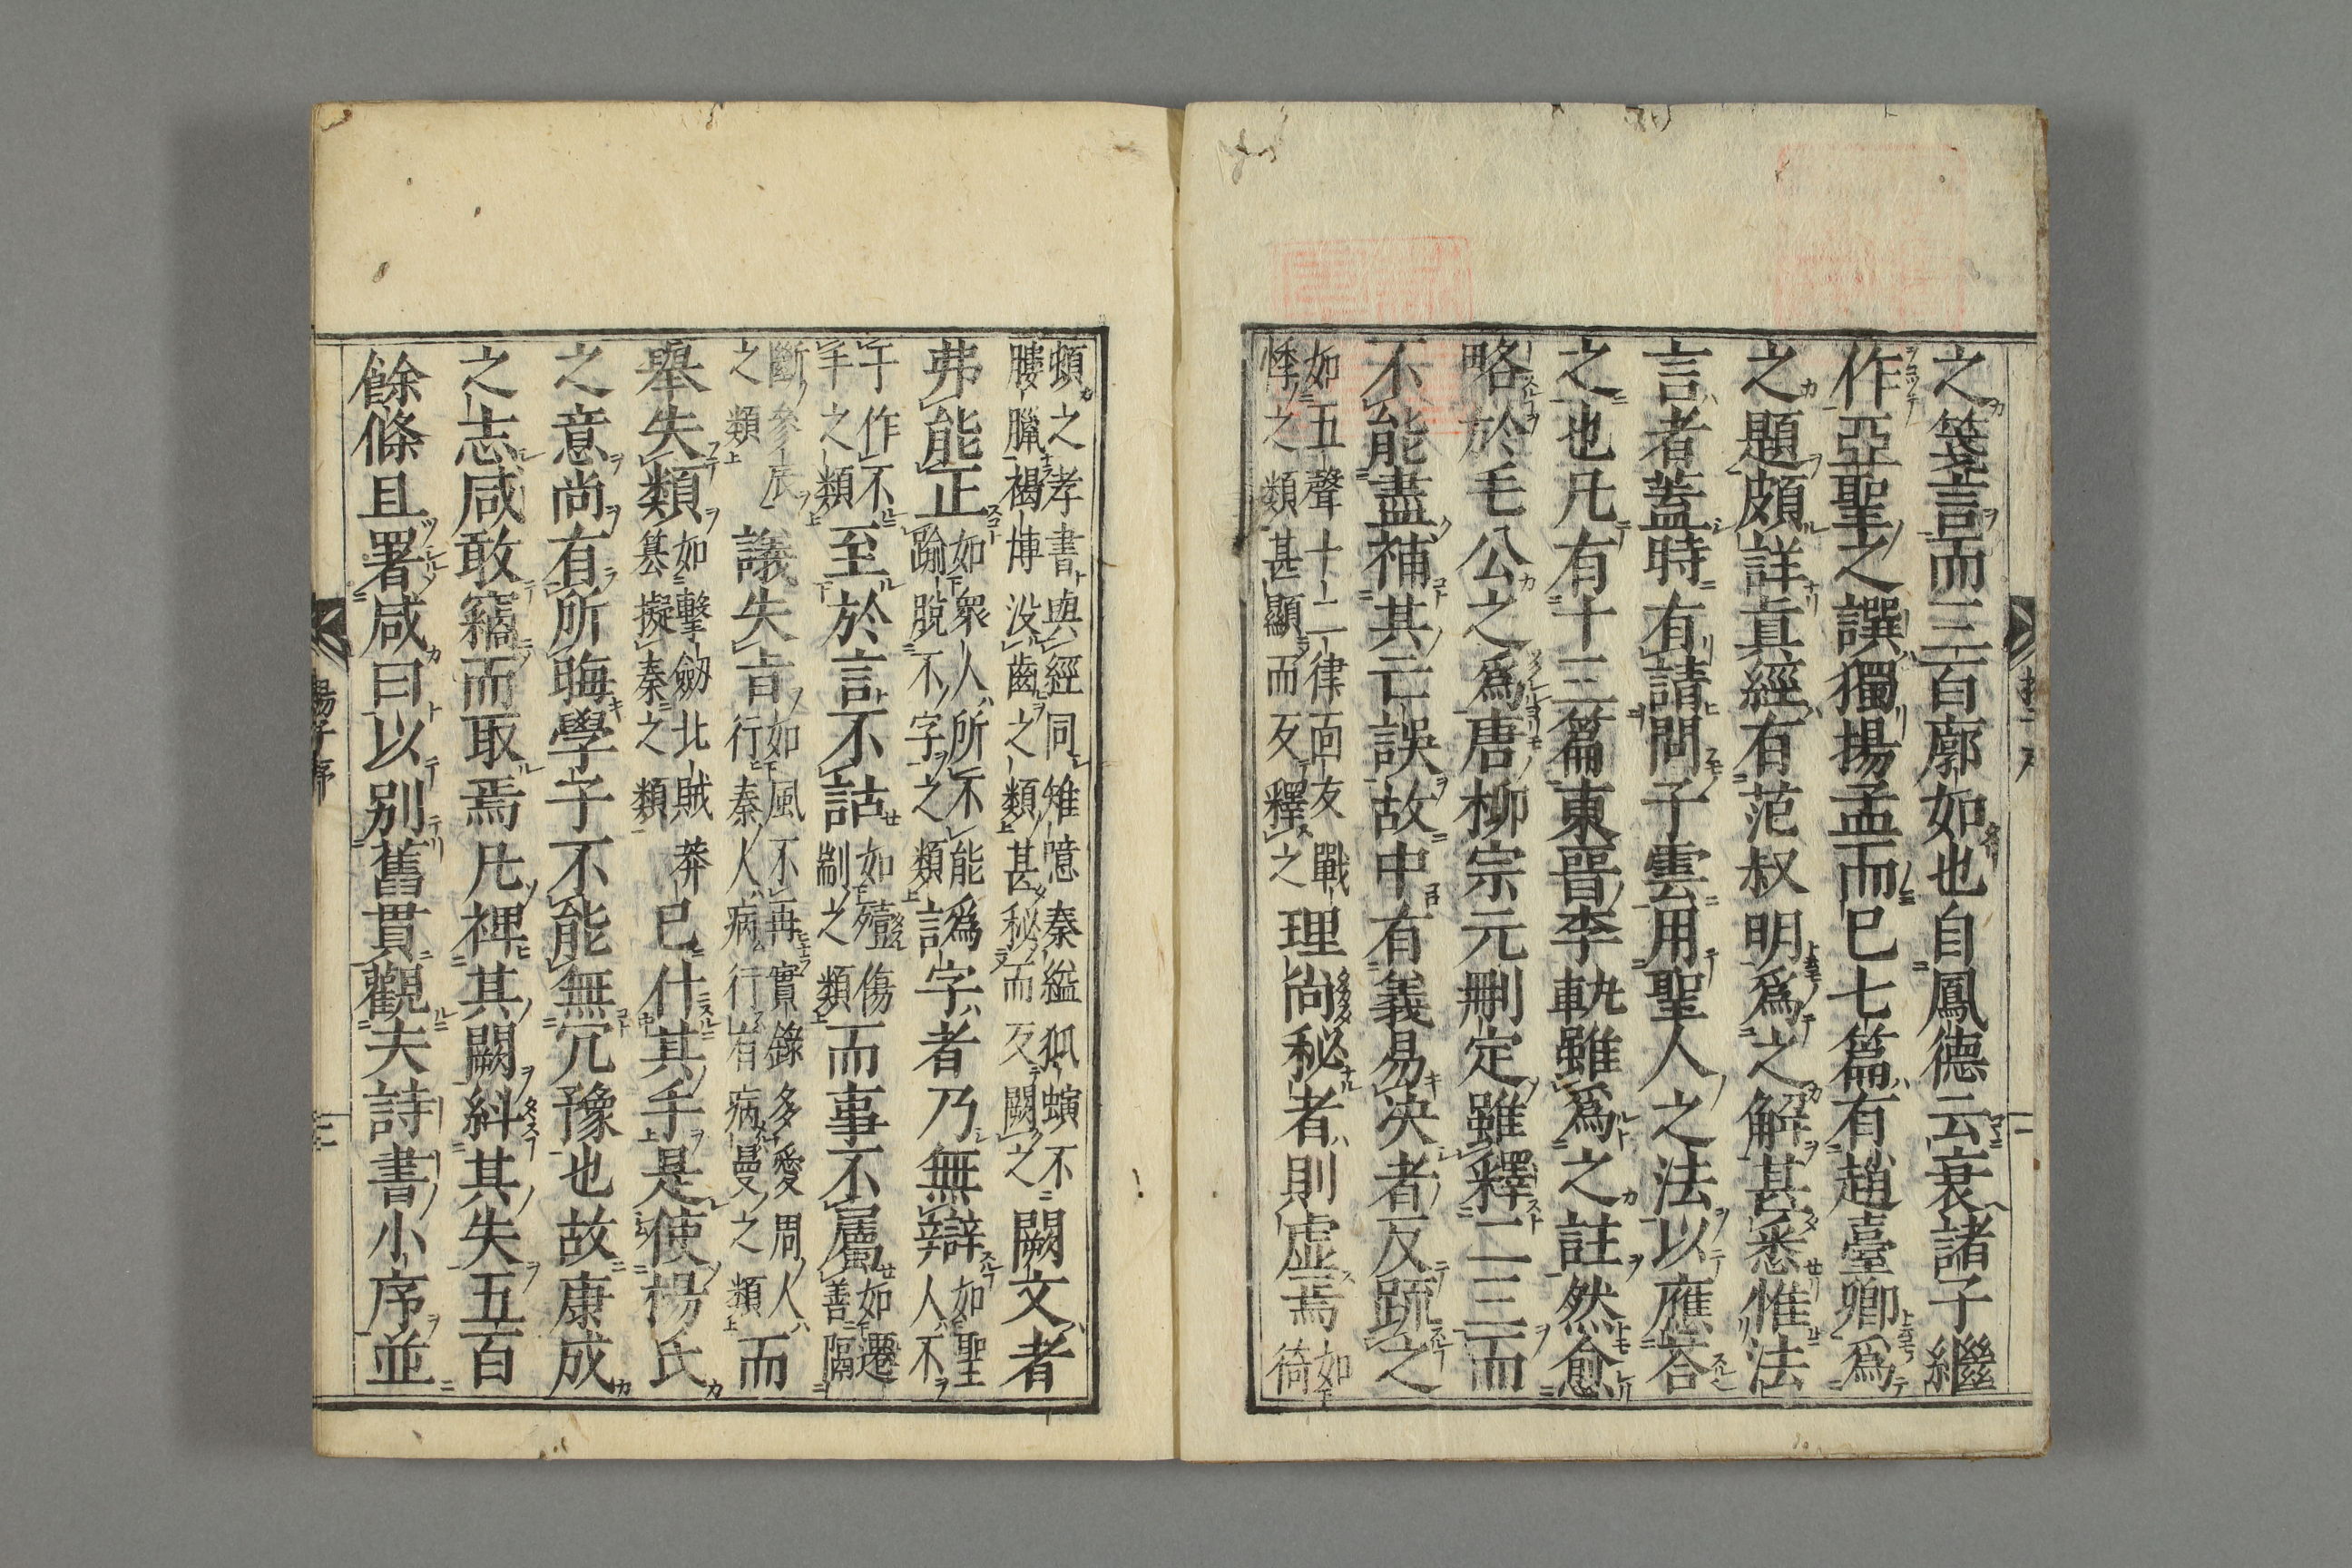 之箋言而三百廓如也自鳳德云衰諸子繼
作亞聖之譔獨揚孟而巳七篇有趙臺卿爲
之題頗詳真經有范叔明爲之解甚悉惟法
言者蓋時有請問子雲用聖人之法以應荅
之也凡有十三篇東晉李軌雖爲之註然愈
略於毛公之爲唐柳宗元刪定雖釋二三而
不能盡補其亡誤故中有義易决者反疏之
如五聲十二律回友戰
悸之類甚顯而反釋之
理尚秘者則虚焉
如
𠋣
頓之孝書與經同雉噫秦縊狐螾不
膢臘褐博没齒之類甚秘而反闕之
闕文者
弗能正
如衆人所不能
踰脫不字之類
爲訓字者乃無辯
如聖
人不
于作不
羊之類
至於言不詁
如殪傷
剬之類
而事不屬
如遷
善隔
斷參辰
之類
議失㫖
如風不再實錄多愛周人
行秦人病行有病曼之類
而
舉失類
如擊劒北賊
篡擬秦之類
莽
巳什其手是使楊氏
之意尚有所晦學子不能無冗豫也故康成
之志咸敢竊而取焉凡裨其闕糾其失五百
餘條且署咸曰以别舊貫觀夫詩書小序並
揚子序
三